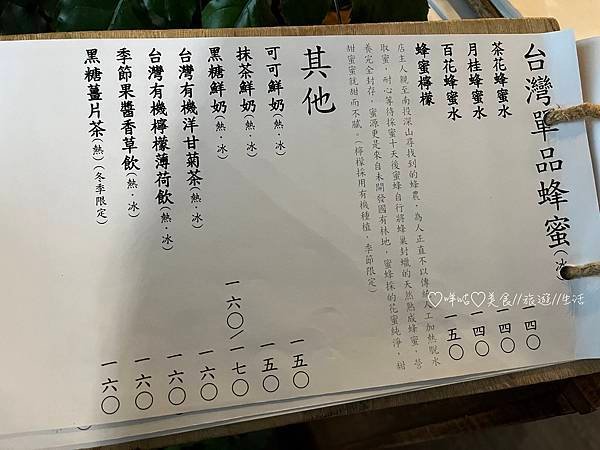 台灣單品蜂蜜(冰
茶花蜂蜜水 一四〇
月桂蜂蜜水 一四〇
百花蜂蜜水 一四〇
蜂蜜檸檬 一五〇
店主人親至南投深山尋找到的蜂農,為人正直不以傳統人工加熱脫水
取蜜,耐心等待採蜜十天後蜜蜂自行將蜂巢封蠟的天然熟成蜂蜜,營
養完全封存,蜜源更是來自未開發國有林地,蜜蜂採的花蜜純淨,甜
甜蜜蜜就甜而不膩。(檸檬採用有機種植,季節限定)
其他
可可鮮奶(熱.冰) 一五〇
抹茶鮮奶(熱.冰) 一五〇
黑糖鮮奶(熱.冰) 一六〇/一七〇
台灣有機洋甘菊茶(熱.冰) 一六〇
台灣有機檸檬薄荷飲(熱.冰) 一六〇
季節果醬香草飲(熱.冰) 一六〇
黑糖薑片茶(熱)(冬季限定) 一六〇
♡咩咕♡美食//旅遊//生活